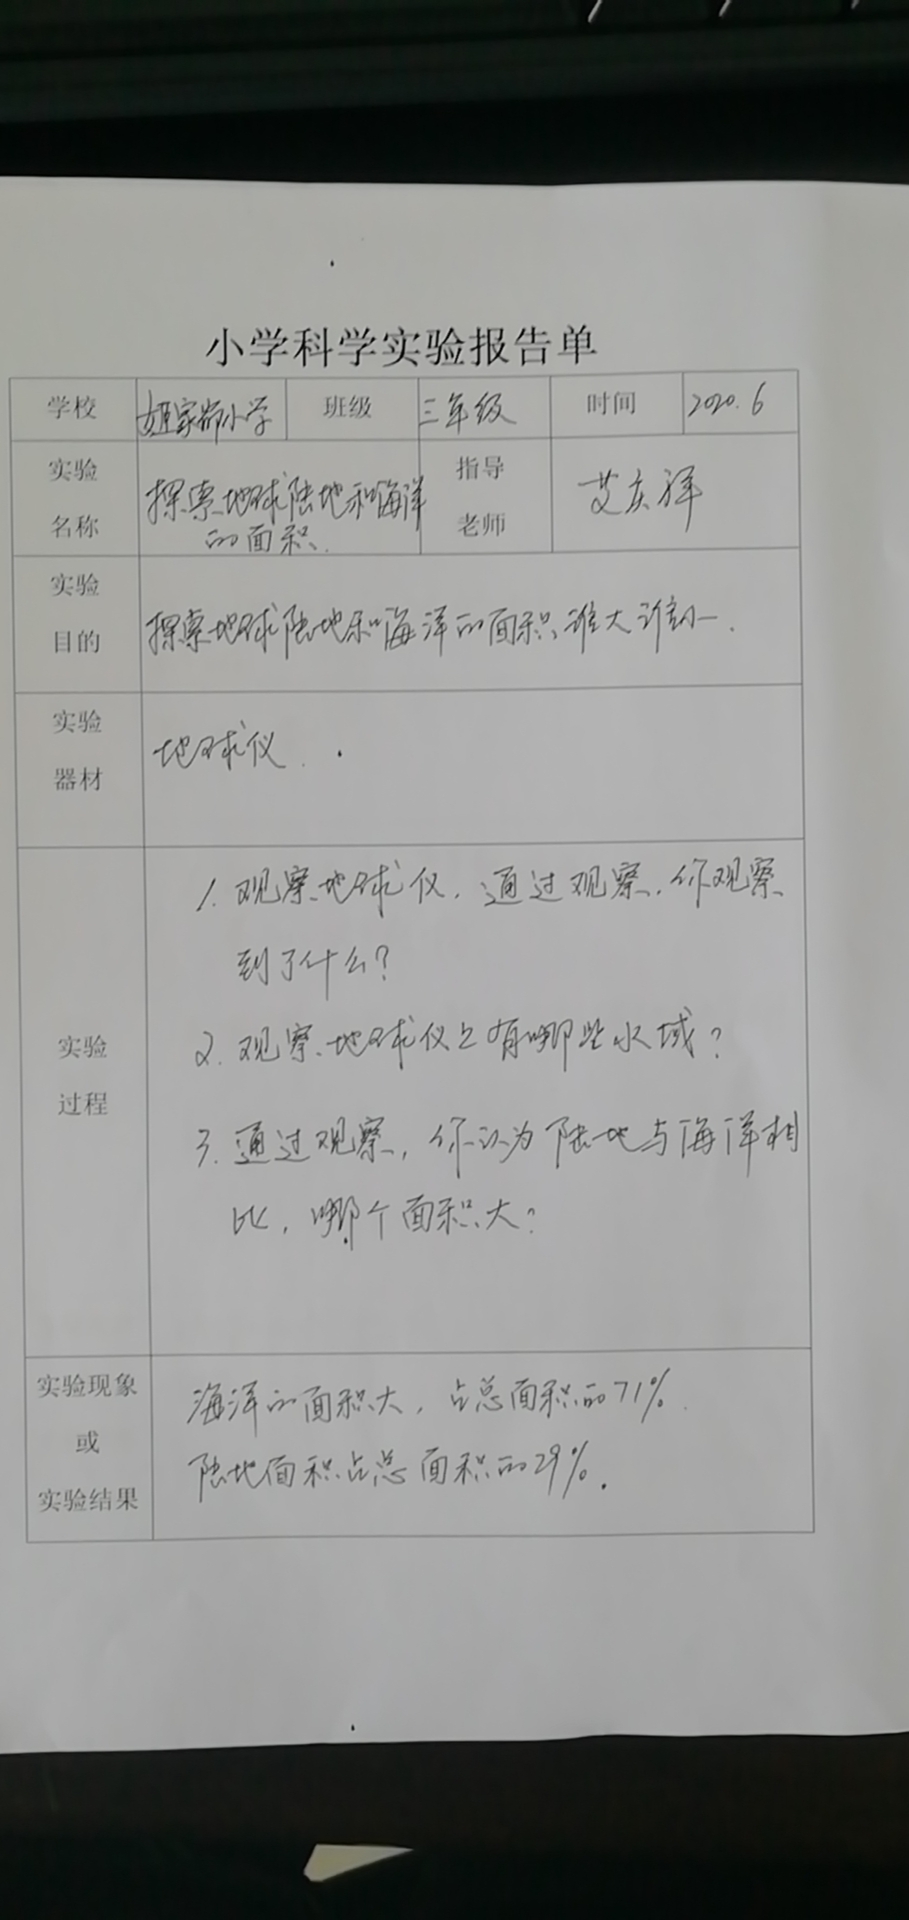 小学科学实验报告单
学校 姬家崭小学 班级 三年级 时间 2020.6
实验 指导
探索地球陆地和海洋 艾庆祥
名称 的面积. 老师
实验
探索地球陆地和海洋的面积谁大谁小.
目的
实验
地球仪.
器材
1. 观察地球仪, 通过观察, 你观察
到了什么?
2. 观察地球仪上有哪些水域?
实验
过程
3. 通过观察, 你认为陆地与海洋相
比, 哪个面积大?
实验现象
海洋的面积大, 占总面积的71%.
或
陆地面积占总面积的29%.
实验结果